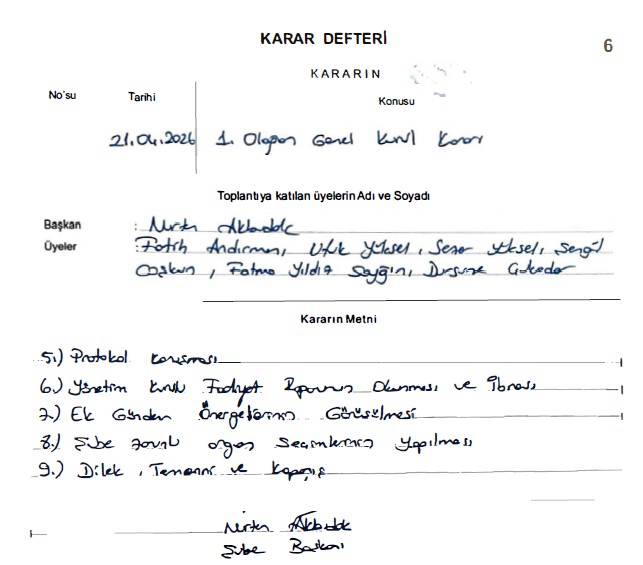 KARAR DEFTERİ
6
KARARIN
No'su Tarihi Konusu
21.04.2026 1. Olağan Genel Kurul Kararı
Toplantıya katılan üyelerin Adı ve Soyadı
Başkan : Nurten
Üyeler : Fatih Andırman, Ufuk Yüksel, Sener Yüksel, Sengül
Coşkun, Fatma Yıldız Saygın, Dursune
Kararın Metni
5.) Protokol Konuşması
6.) Yönetim Kurulu Faaliyet Raporunun Okunması ve İbrası
7.) Ek Gündem Önergelerinin Görüşülmesi
8.) Şube zorunlu organ Seçimlerinin Yapılması
9.) Dilek, Temenni ve Kapanış
Nurten
Şube Başkanı